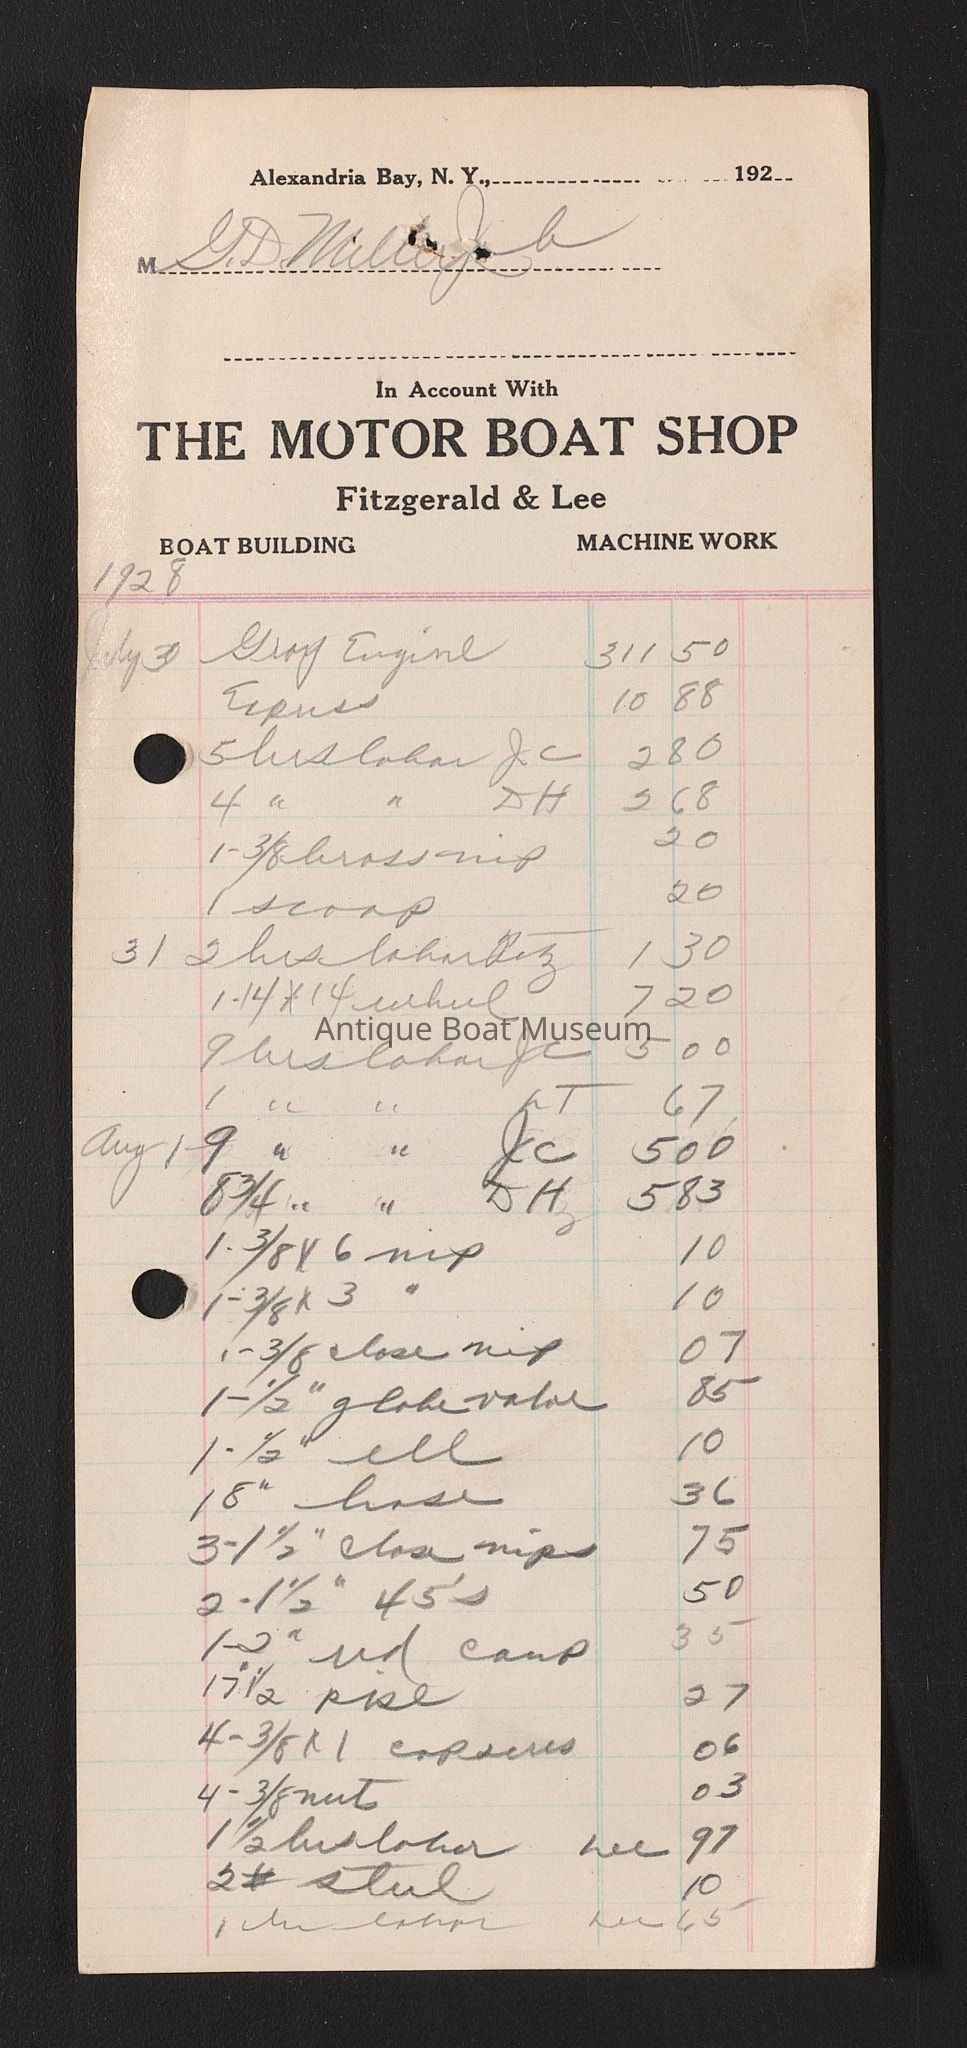 Alexandria Bay, N. Y., 192
M G. D. Miller Job
In Account With
THE MOTOR BOAT SHOP
Fitzgerald & Lee
BOAT BUILDING MACHINE WORK
1928
July 30 Gray Engine 311 50
Express 10 88
5 hrs labor JC 2 80
4 " " DH 2 68
1-3/8 brass nip 20
1 scoop 20
31 2 hrs labor 1 30
1-14 X 14 wheel 7 20
Antique Boat Museum
9 hrs labor JC 5 00
1 " " 67
Aug 1 9 " " JC 5 00
8 3/4 " " DH 5 83
1-3/8 X 6 nip 10
1-3/8 X 3 " 10
1-3/8 close nip 07
1-1/2" globe valve 85
1-1/2" ell 10
18" hose 36
3-1 1/2" close nips 75
2-1 1/2" 45's 50
1-2" red coup 35
17" 1 1/2 pipe 27
4-3/8 X 1 capscres 06
4-3/8 nuts 03
1 1/2 hrs labor Lee 97
2# steel 10
1 hr labor Lee 65